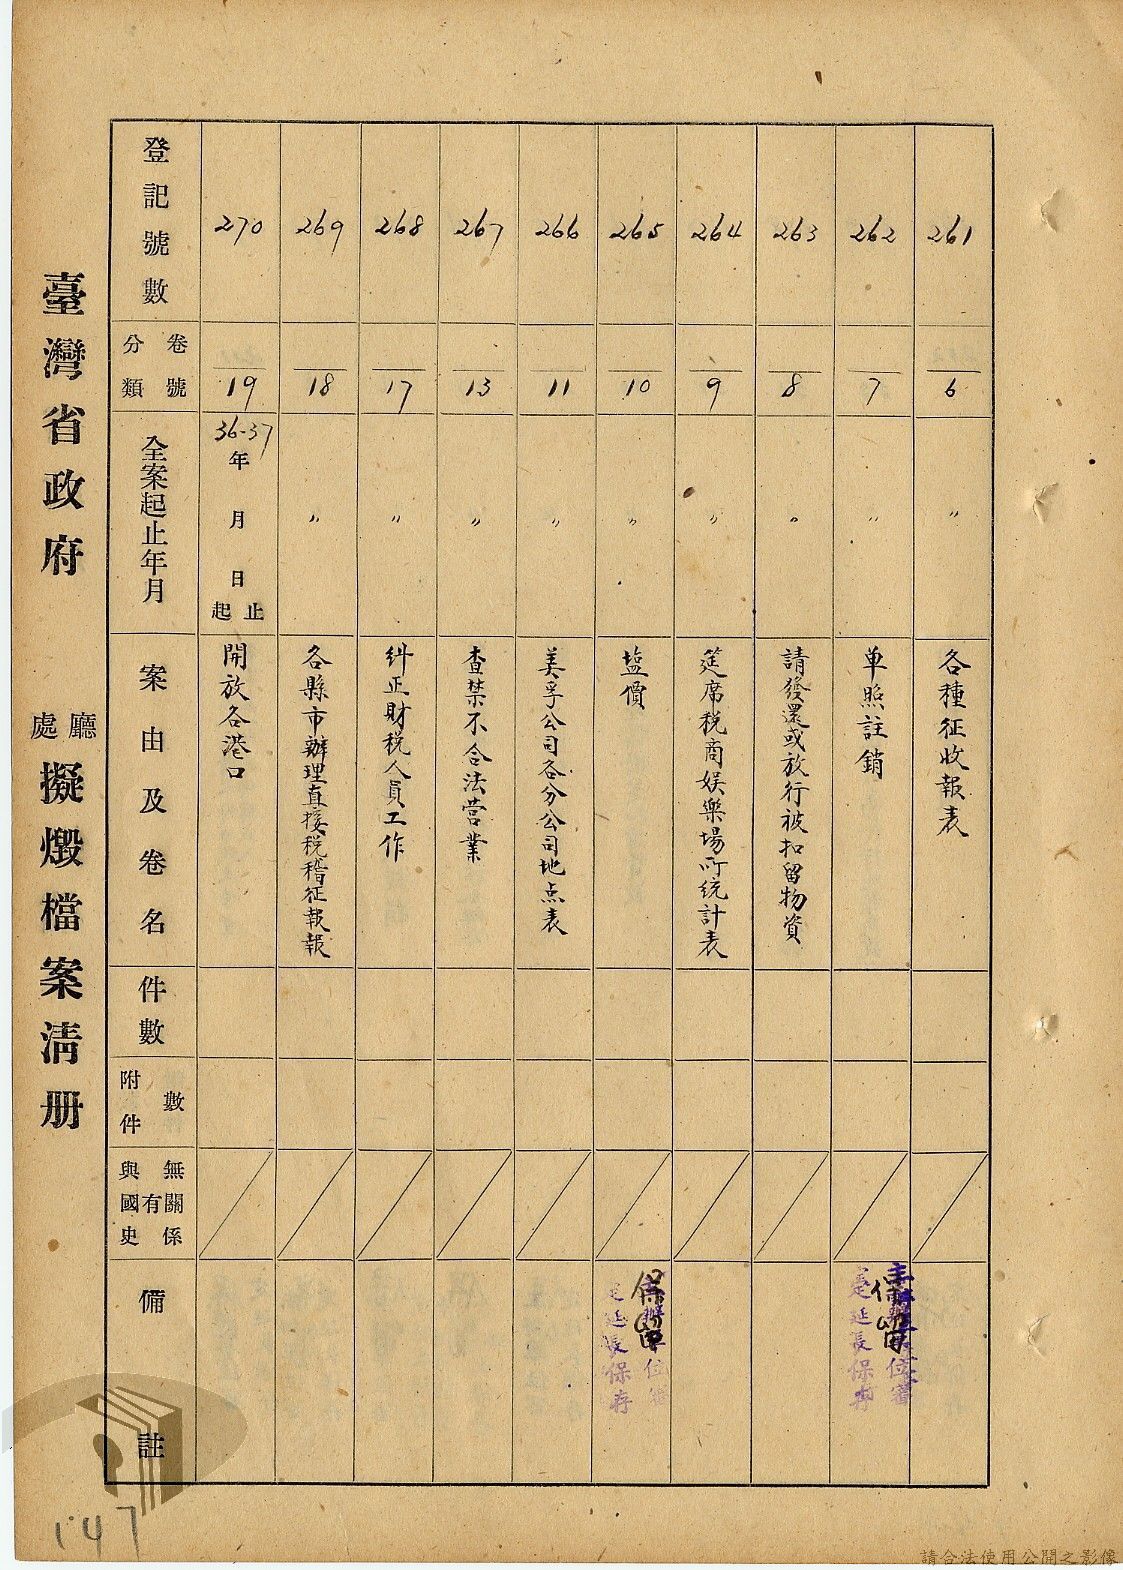 臺灣省政府 廳處 擬燬檔案清册
登記號數
卷號
分類
全案起止年月
案由及卷名
件數
附件數
與國史有無關係
備註
261
6
〃
各種征收報表
262
7
〃
单照註銷
保留
263
8
〃
請發還或放行被扣留物資
264
9
〃
筵席税商娱樂場所统計表
265
10
〃
塩價
保留
266
11
〃
美孚公司各分公司地点表
267
13
〃
查禁不合法营業
268
17
〃
糾正財税人員工作
269
18
〃
各縣市辦理直接税稽征報報
270
19
36-37
年月日
起止
開放各港口
主辦單位審
定延長保存
主辦單位審
定延長保存
147
請合法使用公開之影像